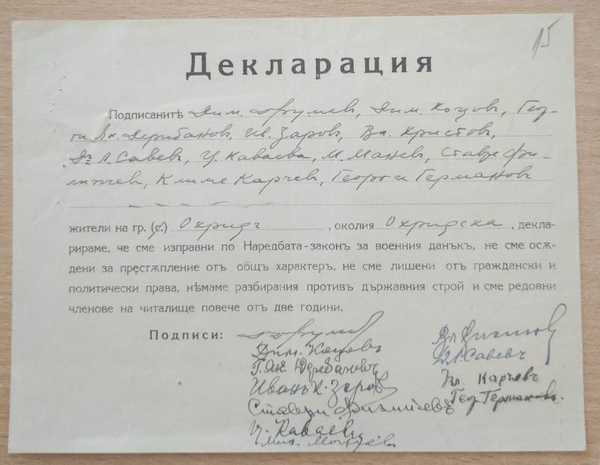 15
Декларация
Подписанитѣ Дим. Другиев, Дим. Коцов, Геор-
ги Ян. Дерибанов, Ив. Заров, Вл. Христов,
Савев, Ц. Каваева, М. Манев, Ставре Фи-
личев, Климе Карчев, Георги Германов
жители на гр. (с.) Охридъ, околия Охридска, декла-
рираме, че сме изправни по Наредбата-законъ за военния данъкъ, не сме осѫ-
дени за престѫпление отъ общъ характеръ, не сме лишени отъ граждански и
политически права, нѣмаме разбирания противъ държавния строй и сме редовни
членове на читалище повече отъ две години.
Подписи:
Дим. Коцовъ
Г. Ян. Дерибановъ
Иванъ К. Заров
Ставри
Ц. Каваев
Савевъ
Кл. Карчевъ
Геор. Германовъ.